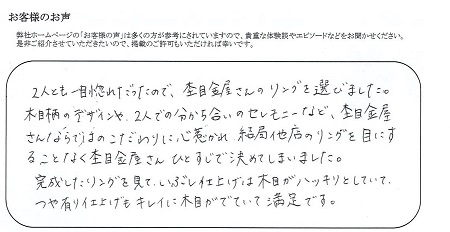 お客様のお声
弊社ホームページの「お客様の声」は多くの方が参考にされていますので、貴重な体験談やエピソードなどをお聞かせください。
是非ご紹介させていただきたいので、掲載のご許可もいただければ幸いです。
2人とも一目惚れだったので、杢目金屋さんのリングを選びました。
木目柄のデザインや、2人での分かち合いのセレモニーなど、杢目金屋
さんならではのこだわりに心惹かれ、結局他店のリングを目にす
ることなく杢目金屋さんひとすじで決めてしまいました。
完成したリングを見て、いぶし仕上げは木目がハッキリとしていて、
つや有り仕上げもキレイに木目がでていて満足です。